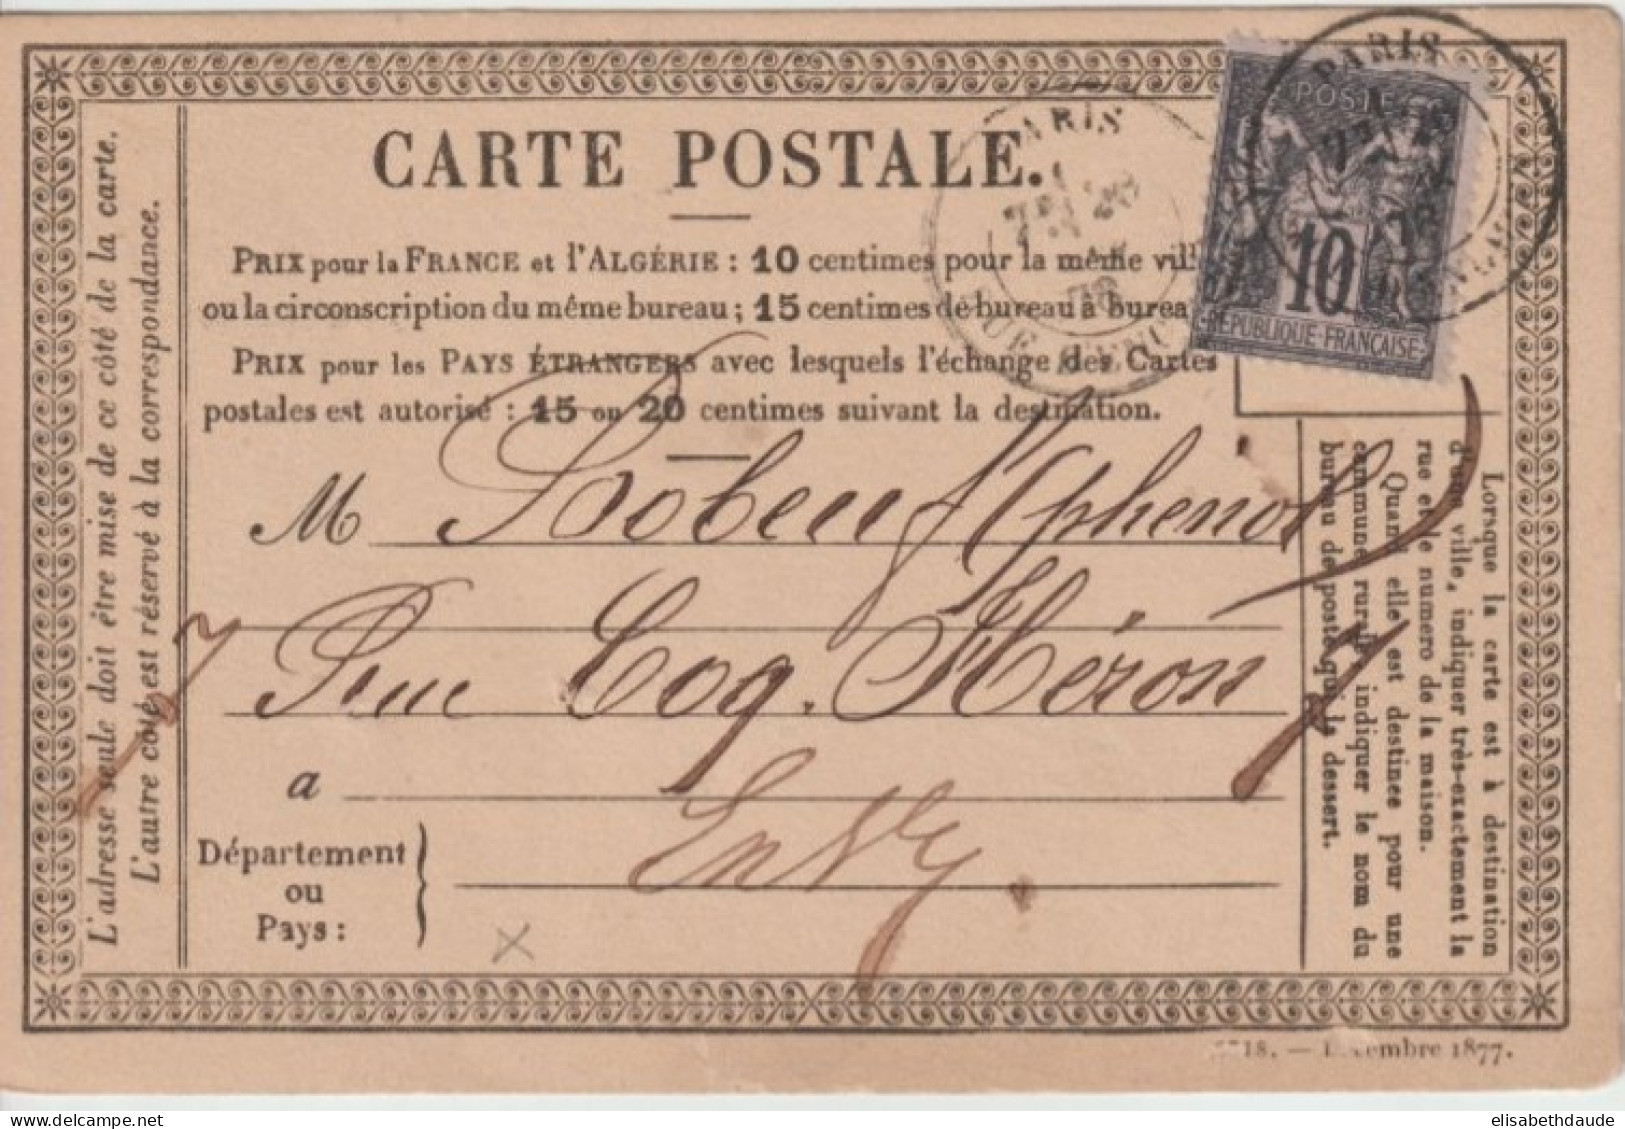 CARTE POSTALE.
PRIX pour la FRANCE et l'ALGÉRIE : 10 centimes pour la même vill
ou la circonscription du même bureau ; 15 centimes de bureau à burea
PRIX pour les PAYS ÉTRANGERS avec lesquels l'échange des Cartes
postales est autorisé : 15 ou 20 centimes suivant la destination.
M
Rue Coq. Héron 7
a
En Ve
Département
ou
Pays :
L'adresse seule doit être mise de ce côté de la carte.
L'autre côté est réservé à la correspondance.
Lorsque la carte est à destination
d'une ville, indiquer très-exactement la
rue et le numero de la maison.
Quand elle est destinee pour une
commune rurale, indiquer le nom du
bureau de poste qui la dessert.
PARIS
78
PARIS
78
POSTE
10
RÉPUBLIQUE-FRANÇAISE
18. — Décembre 1877.
elisabethdaude